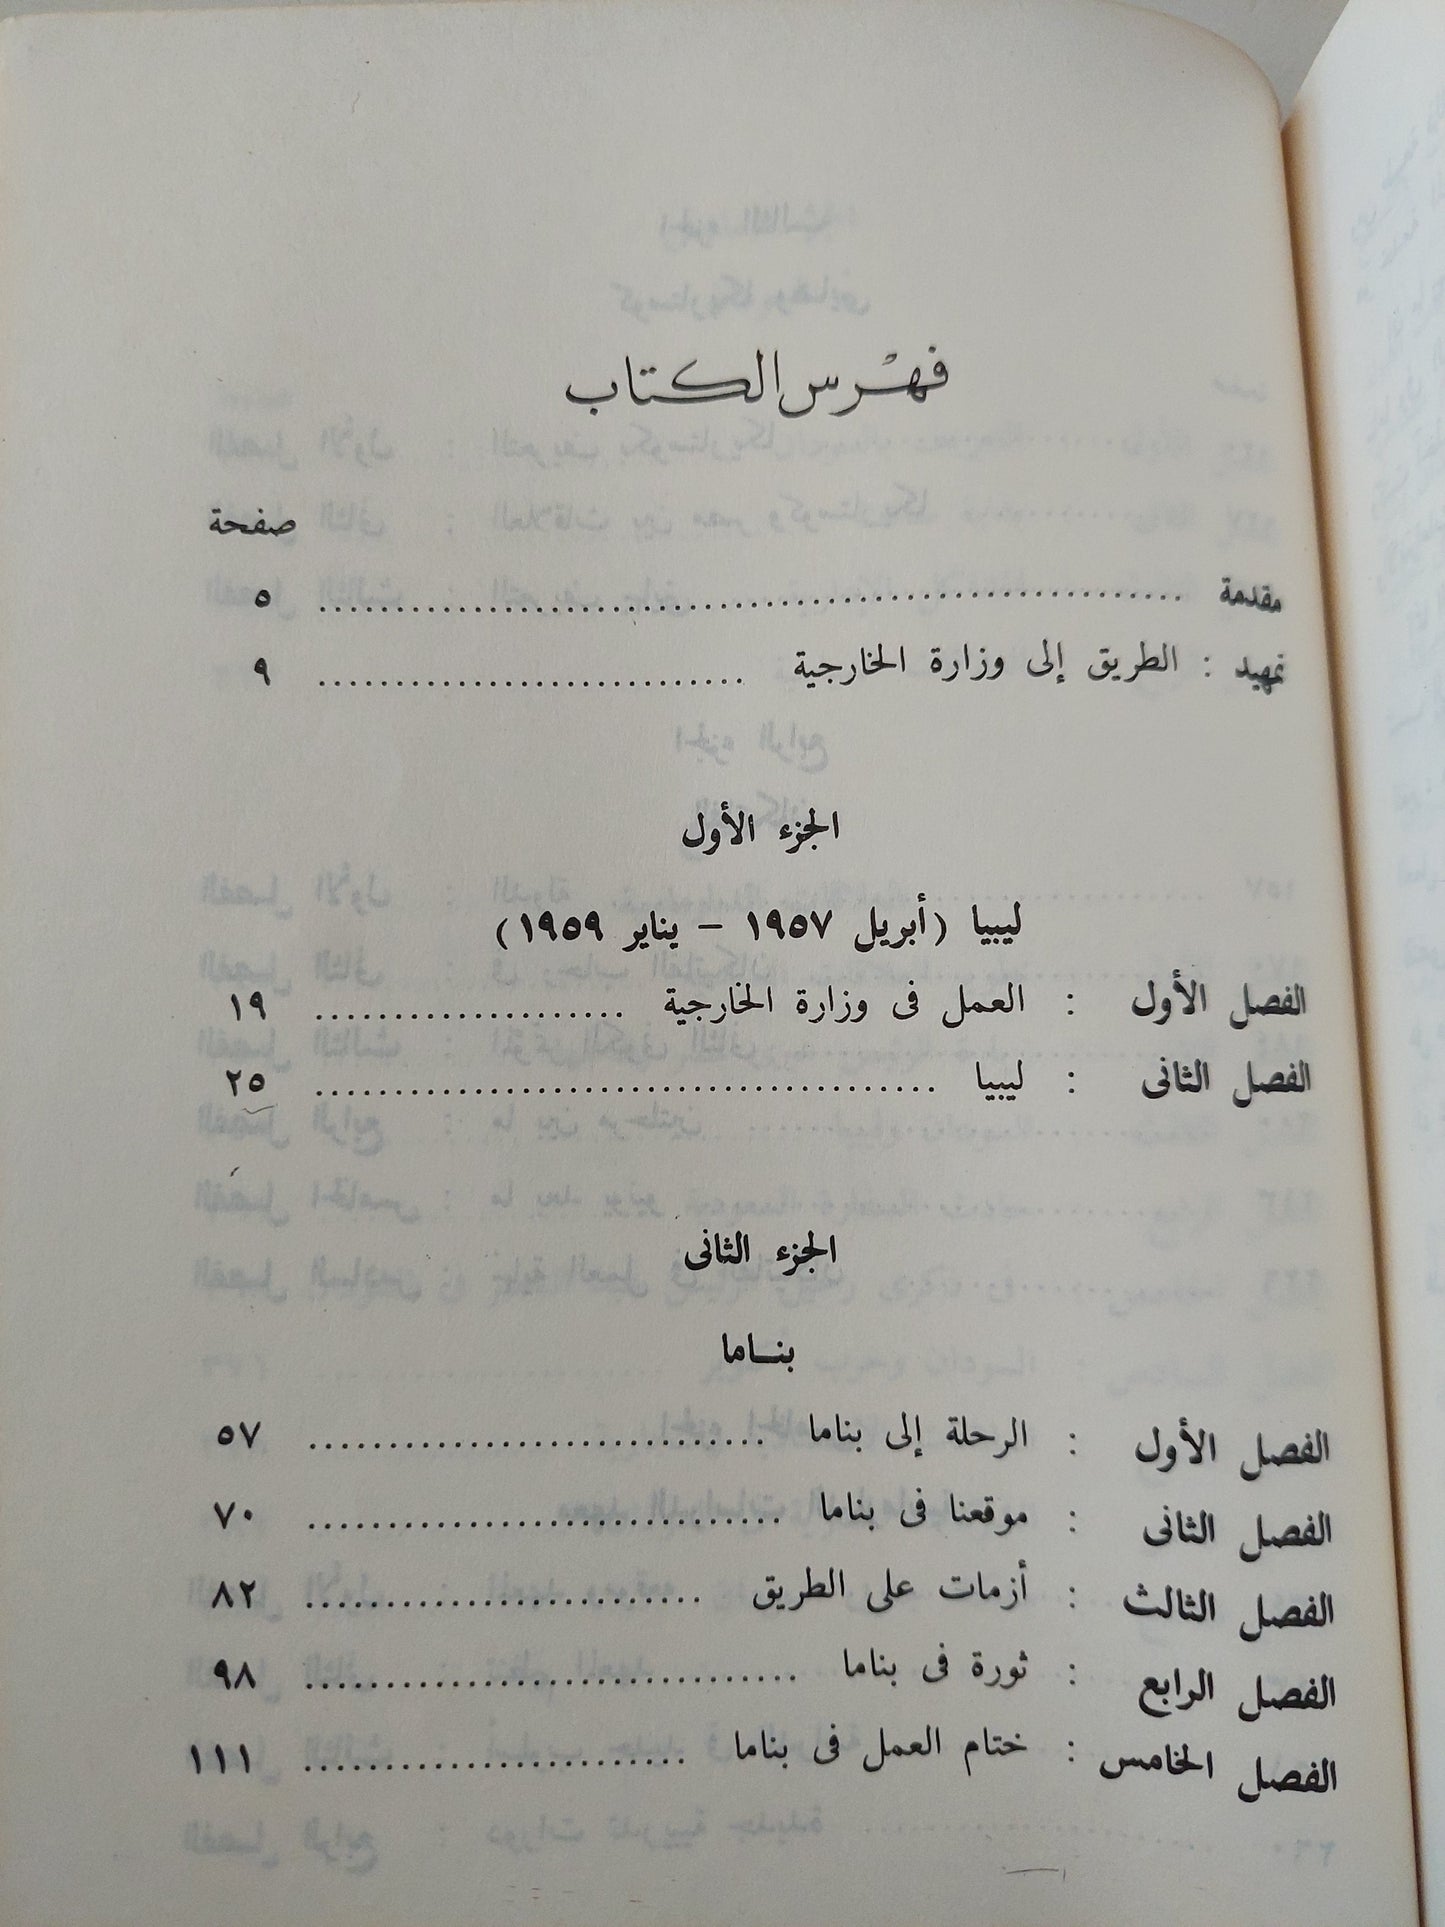 فهرس الكتاب
صفحة
مقدمة ........................................ ٥
تمهيد : الطريق إلى وزارة الخارجية ........................................ ٩
الجزء الأول
ليبيا (أبريل ١٩٥٧ – يناير ١٩٥٩)
الفصل الأول : العمل فى وزارة الخارجية ........................................ ١٩
الفصل الثانى : ليبيا ........................................ ٢٥
الجزء الثانى
بنـاما
الفصل الأول : الرحلة إلى بناما ........................................ ٥٧
الفصل الثانى : موقعنا فى بناما ........................................ ٧٠
الفصل الثالث : أزمات على الطريق ........................................ ٨٢
الفصل الرابع : ثورة فى بناما ........................................ ٩٨
الفصل الخامس : ختام العمل فى بناما ........................................ ١١١